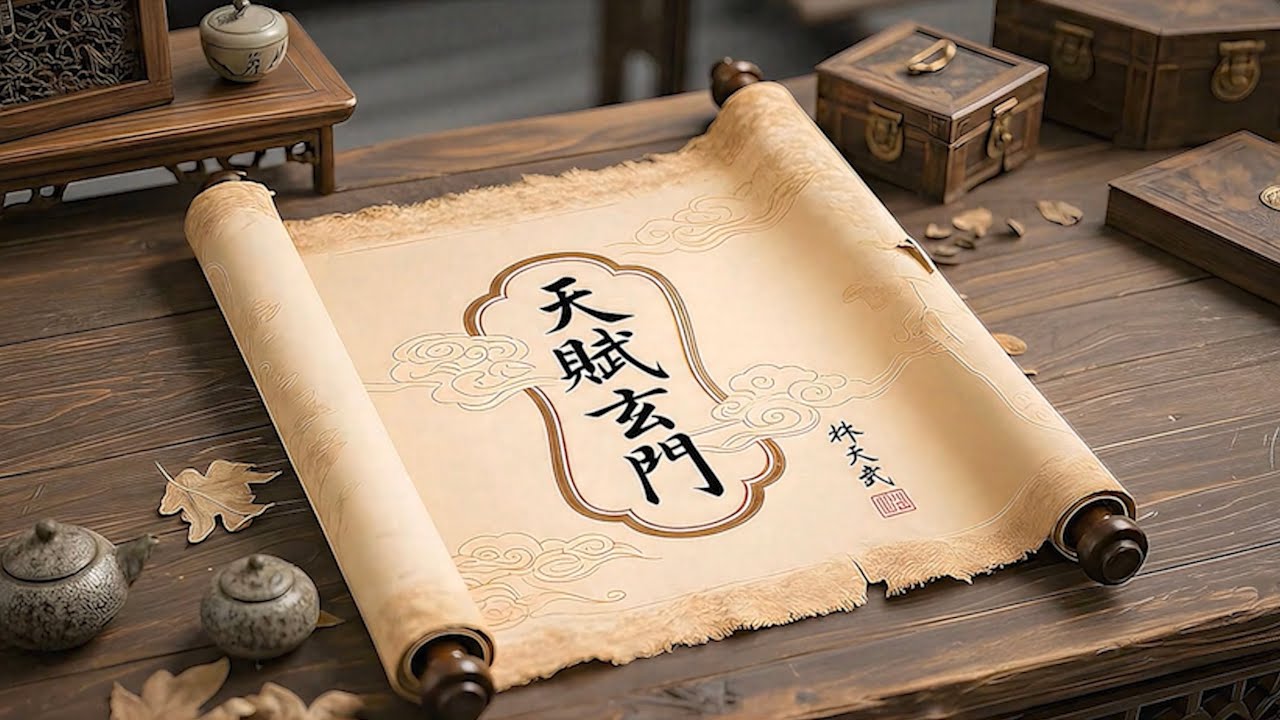 天賦玄門
林天武